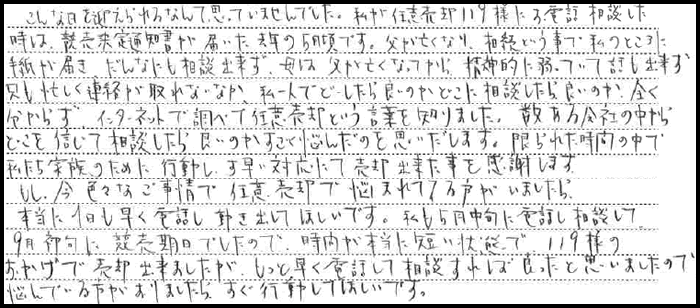 こんな日を迎えられるなんて思っていませんでした。私が任意売却119様にお電話相談した
時は、競売決定通知書が届いた去年の5月頃です。父が亡くなり、相続という事で私のところに
手紙が届き、だんなにも相談出来ず、母は父が亡くなってから精神的に弱っていて話も出来ず
兄も忙しく連絡が取れないなか、私一人でどうしたら良いのかどこに相談したら良いのか、全く
分からず、インターネットで調べて任意売却という言葉を知りました。数ある会社の中から
どこを信じて相談したら良いのかすごく悩んだのを思いだします。限られた時間の中で
私たち家族のために行動し、す早い対応にて売却出来た事を感謝します
もし、今色々なご事情で任意売却で悩まれてる方がいましたら、
本当に1日も早く電話し動き出してほしいです。私も5月中旬に電話し相談して
9月初旬に競売期日でしたので、時間が本当に短い状態で119様の
おかげで売却出来ましたが、もっと早く電話して相談すれば良かったと思いましたので
悩んでいる方がおりましたら、すぐ行動してほしいです。